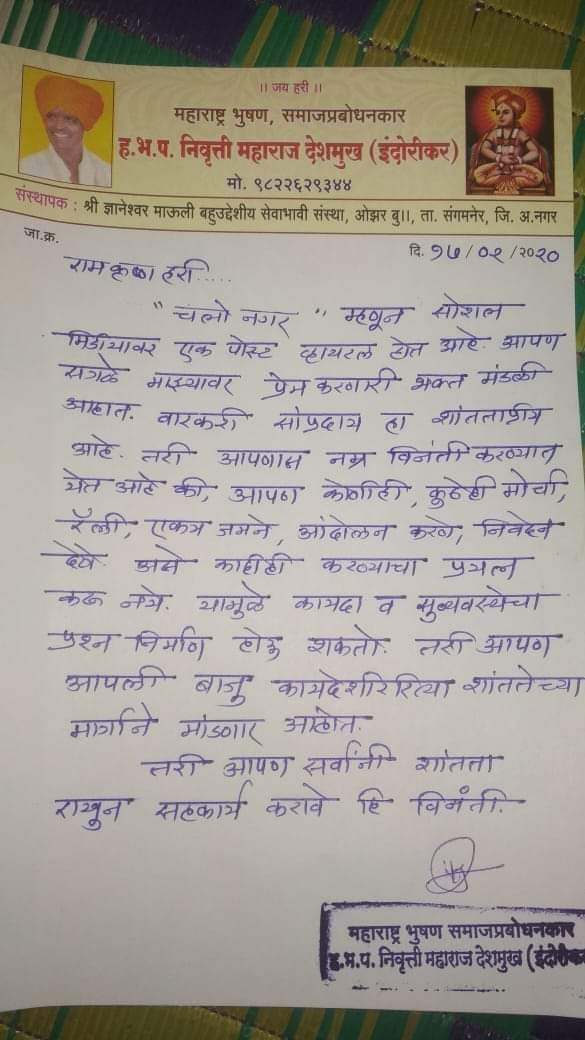 ।। जय हरी ।।
महाराष्ट्र भुषण, समाजप्रबोधनकार
ह.भ.प. निवृत्ती महाराज देशमुख (इंदोरीकर)
मो. ९८२२६२९३४४
संस्थापक : श्री ज्ञानेश्वर माऊली बहुउद्देशीय सेवाभावी संस्था, ओझर बु।।, ता. संगमनेर, जि. अ.नगर
जा.क्र.
दि. १७/०२/२०२०
रामकृष्ण हरी.....
"चलो नगर" म्हणून सोशल
मिडीयावर एक पोस्ट व्हायरल होत आहे. आपण
सगळे माझ्यावर प्रेम करणारी भक्त मंडळी
आहात. वारकरी सांप्रदाय हा शांतताप्रिय
आहे. तरी आपणास नम्र विनंती करण्यात
येत आहे की, आपण कोणीही, कुठेही मोर्चा,
रॅली, एकत्र जमने, आंदोलन करणे, निवेदन
देणे. असे काहीही करण्याचा प्रयत्न
करू नये. यामुळे कायदा व सुव्यवस्थेचा
प्रश्न निर्माण होऊ शकतो. तरी आपण
आपली बाजु कायदेशीररित्या शांततेच्या
मार्गाने मांडणार आहोत.
तरी आपण सर्वांनी शांतता
राखुन सहकार्य करावे हि विनंती.
महाराष्ट्र भुषण समाजप्रबोधनकार
ह.भ.प. निवृत्ती महाराज देशमुख (इंदोरीक